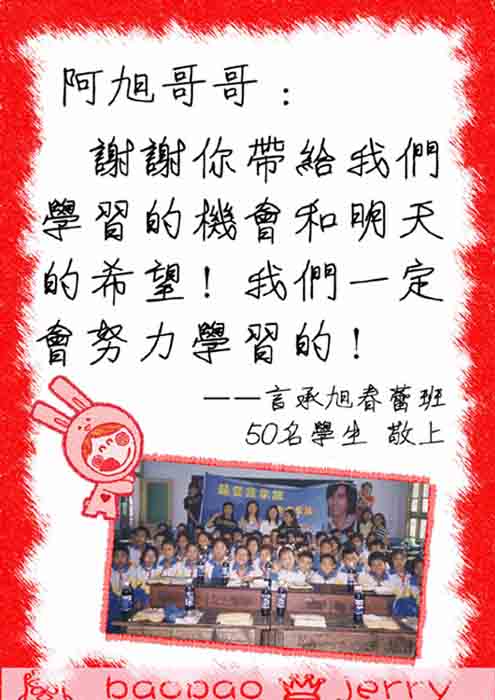 阿旭哥哥：
謝謝你帶給我們
學習的機會和明天
的希望！我們一定
會努力學習的！
——言承旭春蕾班
50名學生 敬上
baobao jerry